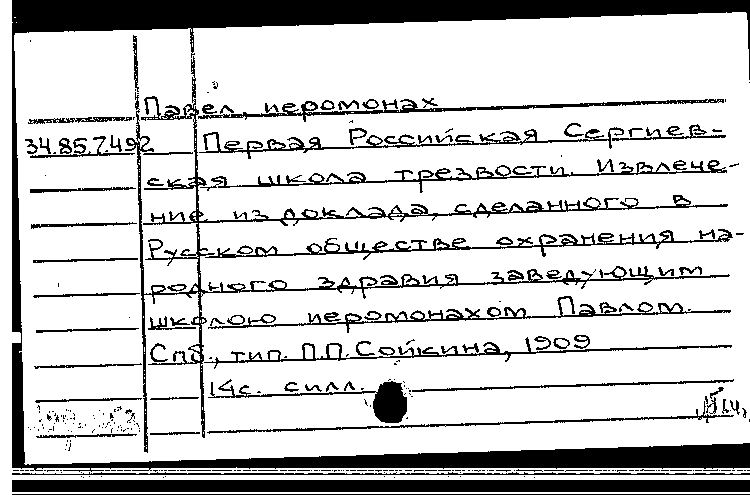 Павел, иеромонах
34.85.7492 Первая Российская Сергиев-
ская школа трезвости. Извлече-
ние из доклада, сделанного в
Русском обществе охранения на-
родного здравия заведующим
школою иеромонахом Павлом.
Спб., тип. П.П. Сойкина, 1909
14с. силл.